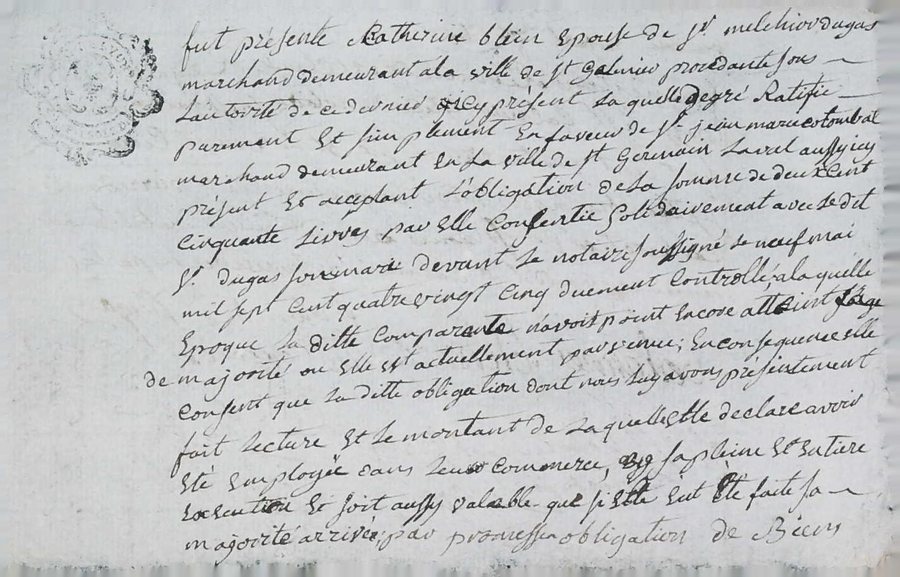 fut présente Catherine blein Epouse de Sr. melchior dugas
marchand demeurant a la ville de St Galmier procedante sous
Lautorité de ce dernier icy présent Laquelle de gré Ratifie
purement Et simplement En faveur de Sr. jean marie colombat
marchand demeurant En La ville de St Germain Laval aussy icy
présent Et acceptant L'obligation de La somme de deux Cent
Cinquante Livres par Elle Consentie Solidairement avec Le dit
Sr. dugas son mari devant Le notaire soussigné Le neuf mai
mil sept Cent quatre vingt Cinq duement Controllé, a la quelle
Epoque La ditte Comparante n'avoit point Encore atteint L'age
de majorité ou Elle Est actuellement parvenue; En consequence elle
Consent que La ditte obligation dont nous Luy avons présentement
fait Lecture Et Le montant de Laquelle Elle declare avoir
Eté Employée dans Leur Commerce, sa pleine Et Entiere
Execution Et soit aussy valable que si Elle Eut Eté faite sa
majorité arrivée; par promesse obligation de Biens